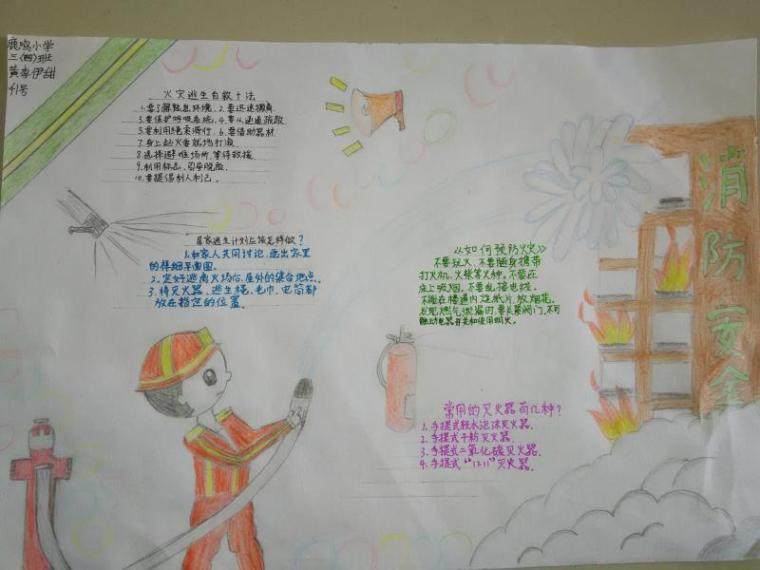 鹿鸣小学
三(四)班
黄李伊甜
41号
火灾逃生自救十法
1.要了解熟悉环境、2.要迅速撤离
3.要保护呼吸系统、4.要从通道疏散
5.要利用绳索滑行、6.要借助器材
7.身上起火要就地打滚
8.选择避难场所,等待救援
9.利用标志、引导脱险
10.要提倡利人利己。
居家逃生计划应该怎样做?
1.和家人共同讨论,画出家里
的详细平面图。
2.定好逃离火场后,屋外的集合地点。
3.将灭火器、逃生绳、毛巾、电筒都
放在指定的位置。
《如何预防火灾》
不要玩火、不要随身携带
打火机、火柴等火种,不要在
床上吸烟,不要乱接电线。
不能在楼道内烧纸片、放烟花。
发现燃气泄漏时,要关紧阀门,不可
触动电器开关和使用明火。
常用的灭火器有几种?
1.手提式轻水泡沫灭火器.
2.手提式干粉灭火器.
3.手提式二氧化碳灭火器.
4.手提式“1211”灭火器.
消
防
安
全